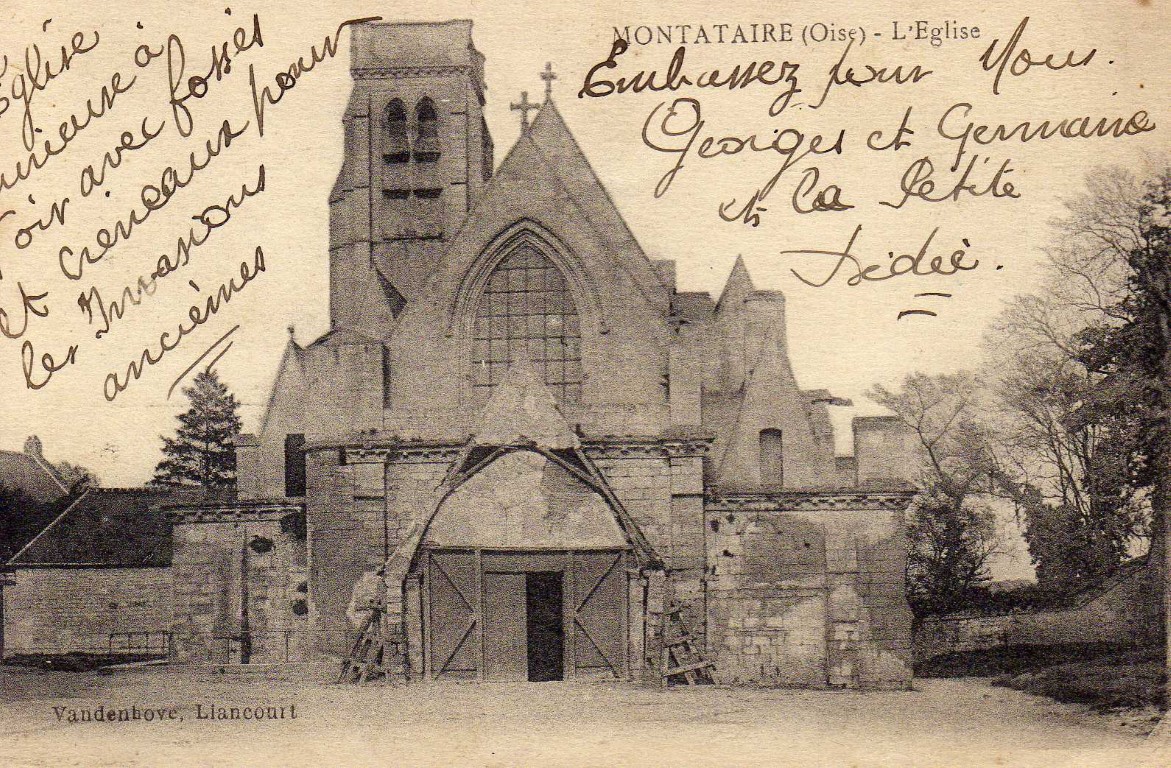 Eglise
curieuse à
voir avec fossés
et creneaux pour
les Invasions
anciènnes
MONTATAIRE (Oise) - L'Eglise
Embassez pour Nous.
Georges et Germaine
et la Petite
Dédée.
Vandenhove, Liancourt